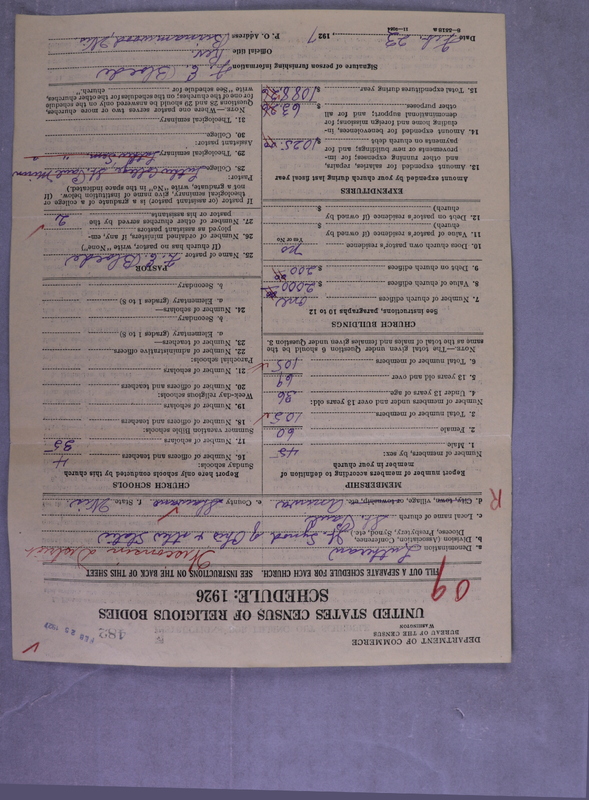 DEPARTMENT OF COMMERCE
BUREAU OF THE CENSUS
WASHINGTON
482
FEB 25 1927
UNITED STATES CENSUS OF RELIGIOUS BODIES
SCHEDULE: 1926
09
FILL OUT A SEPARATE SCHEDULE FOR EACH CHURCH. SEE INSTRUCTIONS ON THE BACK OF THIS SHEET
a. Denomination Lutheran Wisconsin District
b. Division (Association, Conference, Diocese, Presbytery, Synod, etc.) Jt. Synod of Ohio & other States
c. Local name of church St. Paul
R
d. City, town, village, or township, etc. Aniwa e. County Shawano f. State Wis
MEMBERSHIP
Report number of members according to definition of
member your church
Number of members, by sex:
1. Male 45
2. Female 60
3. Total number of members 105
Number of members under and over 13 years old:
4. Under 13 years of age 36
5. 13 years old and over 69
6. Total number of members 105
NOTE.—The total given under Question 6 should be the
same as the total of males and females given under Question 3.
CHURCH BUILDINGS
See Instructions, paragraphs 10 to 12
7. Number of church edifices One
8. Value of church edifices $ 2000
9. Debt on church edifices $ 200
10. Does church own pastor's residence yes
Yes or No
11. Value of pastor's residence (if owned by
church) $
12. Debt on pastor's residence (if owned by
church) $
EXPENDITURES
Amount expended by your church during last fiscal year
13. Amount expended for salaries, repairs,
and other running expenses; for im-
provements or new buildings, and for
payments on church debt $ 1025
14. Amount expended for benevolences, in-
cluding home and foreign missions; for
denominational support; and for all
other purposes 63
15. Total expenditures during year $ 1088
CHURCH SCHOOLS
Report here only schools conducted by this church
Sunday schools:
16. Number of officers and teachers 4
17. Number of scholars 35
Summer vacation Bible schools:
18. Number of officers and teachers
19. Number of scholars
Week-day religious schools:
20. Number of officers and teachers
21. Number of scholars
Parochial schools:
22. Number of administrative officers
23. Number of teachers—
a. Elementary (grades 1 to 8)
b. Secondary
24. Number of scholars—
a. Elementary (grades 1 to 8)
b. Secondary
PASTOR
25. Name of pastor F. E. Bloede
(If church has no pastor, write "None")
26. Number of ordained ministers, if any, em-
ployed as assistant pastors
27. Number of other churches served by the
pastor or his assistants 2
If pastor (or assistant pastor) is a graduate of a college or
theological seminary, give name of institution below. (If
not a graduate, write "No" in the space indicated.)
Pastor:
28. College Luther College St. Paul Minn
29. Theological seminary Luther Sem. " "
Assistant pastor:
30. College
31. Theological seminary
NOTE.—Where one pastor serves two or more churches,
Questions 28 and 29 should be answered only on the schedule
for one of the churches; on the schedules for the other churches,
write "See schedule for church."
Signature of person furnishing information F. E. Bloede
Official title Rev.
P. O. Address Birnamwood, Wis
Date Feb. 23, 1927